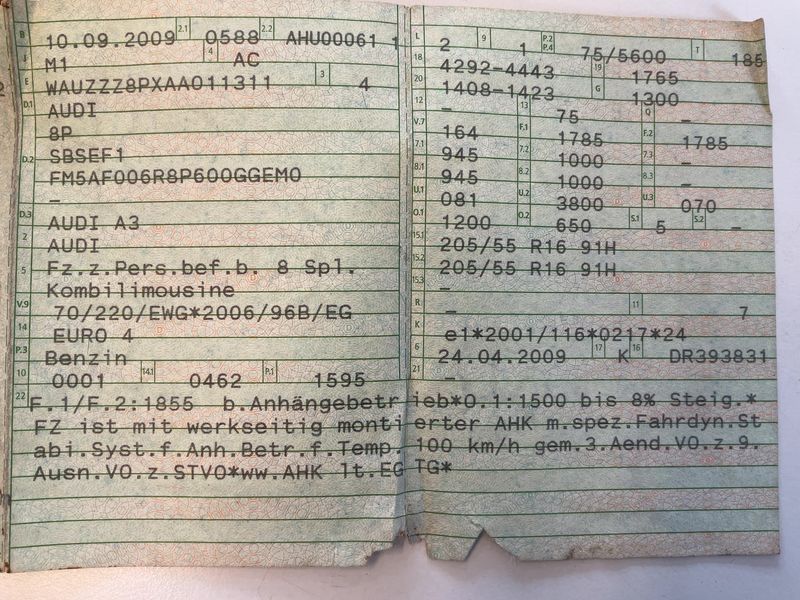 B 10.09.2009 2.1 0588 2.2 AHU00061 1
J M1 4 AC
E WAUZZZ8PXAA011311 3 4
D.1 AUDI
8P
D.2 SBSEF1
FM5AF006R8P600GGEM0
–
D.3 AUDI A3
2 AUDI
5 Fz.z.Pers.bef.b. 8 Spl.
Kombilimousine
V.9 70/220/EWG*2006/96B/EG
14 EURO 4
P.3 Benzin
10 0001 14.1 0462 P.1 1595
L 2 9 1 P.2 P.4 75/5600 T 185
18 4292-4443 19 1765
20 1408-1423 G 1300
12 – 13 75 Q –
V.7 164 F.1 1785 F.2 1785
7.1 945 7.2 1000 7.3 –
8.1 945 8.2 1000 8.3 –
U.1 081 U.2 3800 U.3 070
O.1 1200 O.2 650 S.1 5 S.2 –
15.1 205/55 R16 91H
15.2 205/55 R16 91H
15.3 –
R – 11 7
K e1*2001/116*0217*24
6 24.04.2009 17 K 16 DR393831
21 –
22 F.1/F.2:1855 b.Anhängebetrieb*O.1:1500 bis 8% Steig.*
FZ ist mit werkseitig montierter AHK m.spez.Fahrdyn.St
abi.Syst.f.Anh.Betr.f.Temp.100 km/h gem.3.Aend.VO.z.9.
Ausn.VO.z.STVO*ww.AHK lt.EG TG*